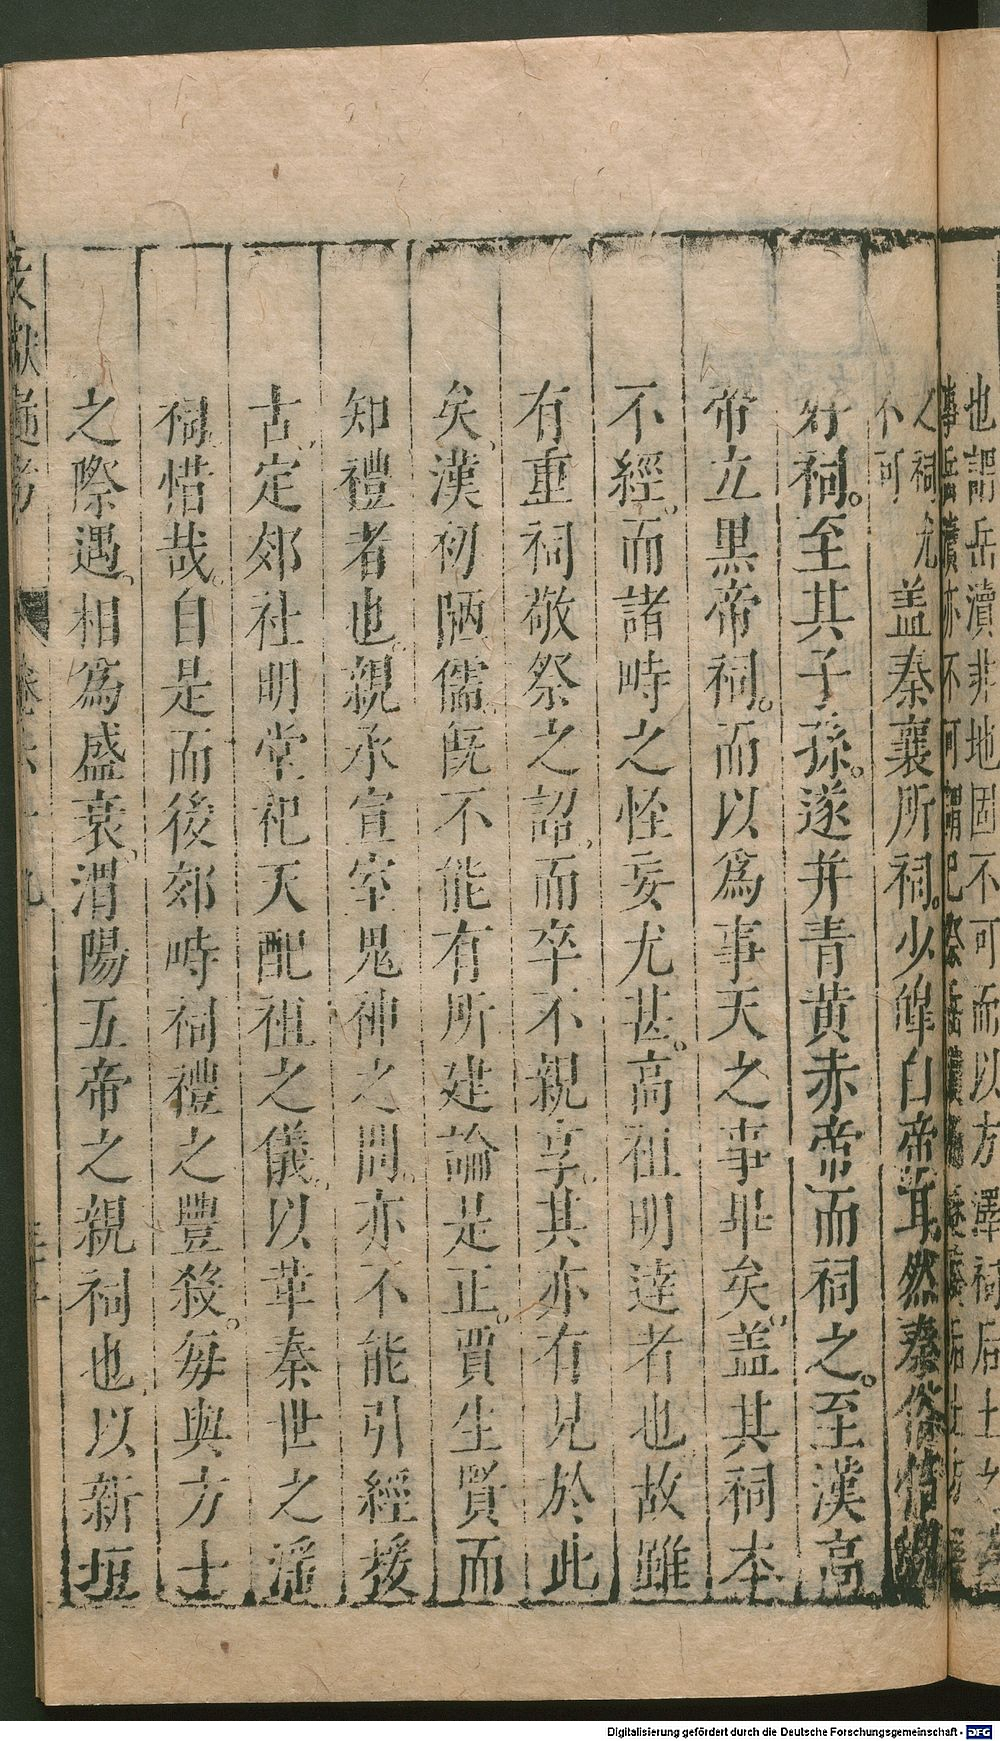 也謂岳瀆非地固不可而以方澤祠后土
人祠尤
不可
盖秦襄所祠少皥白帝耳然秦俗
好祠至其子孫遂并青黃赤帝而祠之至漢高
帝立黑帝祠而以為事天之事畢矣盖其祠本
不經而諸畤之怪妄尤甚高祖明達者也故雖
有重祠敬祭之詔而卒不親享其亦有見於此
矣漢初陋儒旣不能有所建論是正賈生賢而
知禮者也親承宣室鬼神之問亦不能引經援
古定郊社明堂祀天配祖之儀以革秦世之淫
祠惜哉自是而後郊畤祠禮之豐殺每與方士
之際遇相為盛衰渭陽五帝之親祠也以新垣
Digitalisierung gefördert durch die Deutsche Forschungsgemeinschaft - DFG